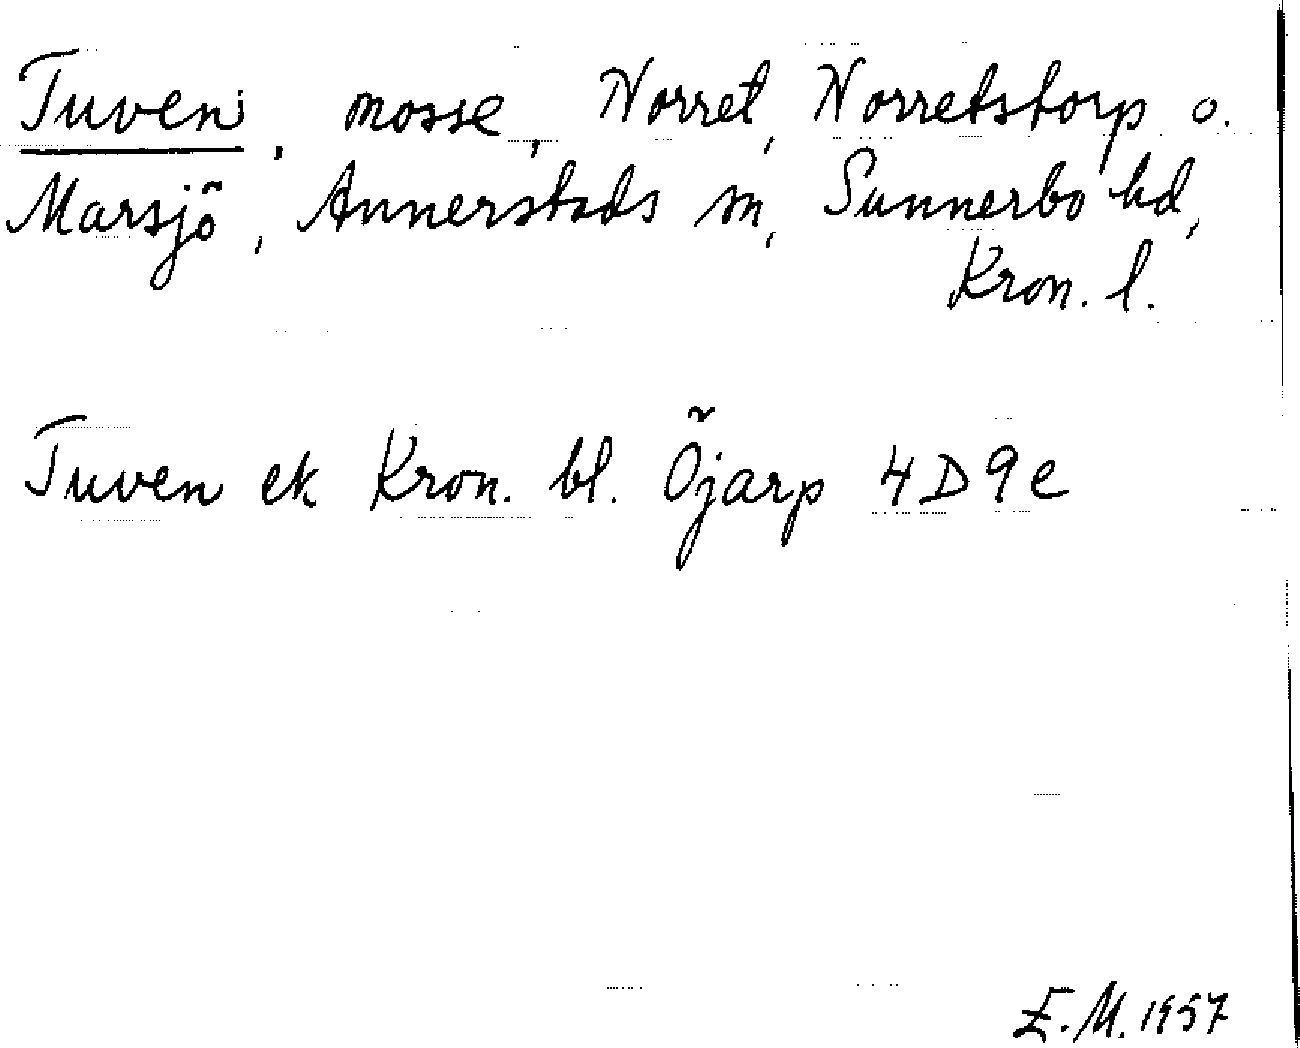 Tuven, mosse, Norret, Norretstorp o.
Marsjö, Annerstads sn, Sunnerbo hd,
Kron. l.
Tuven ek Kron. bl. Öjarp 4D9e
E.M. 1957